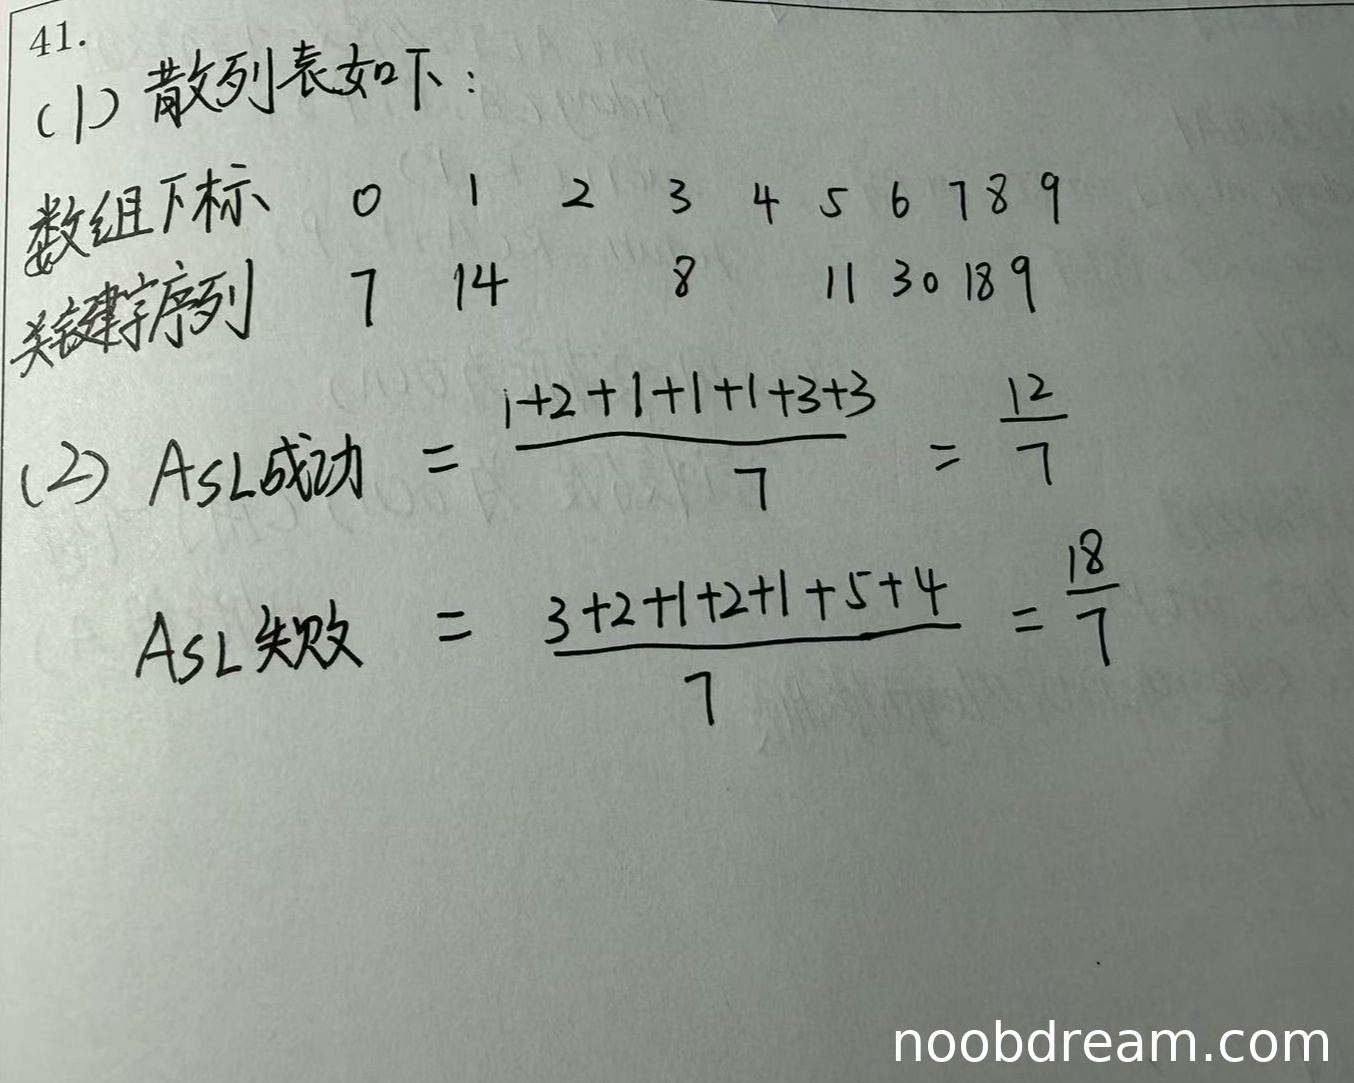 41.
(1) 散列表如下：
数组下标 0 1 2 3 4 5 6 7 8 9
关键字序列 7 14 8 11 30 18 9
(2) ASL成功 = (1+2+1+1+1+3+3)/7 = 12/7
ASL失败 = (3+2+1+2+1+5+4)/7 = 18/7
noobdream.com